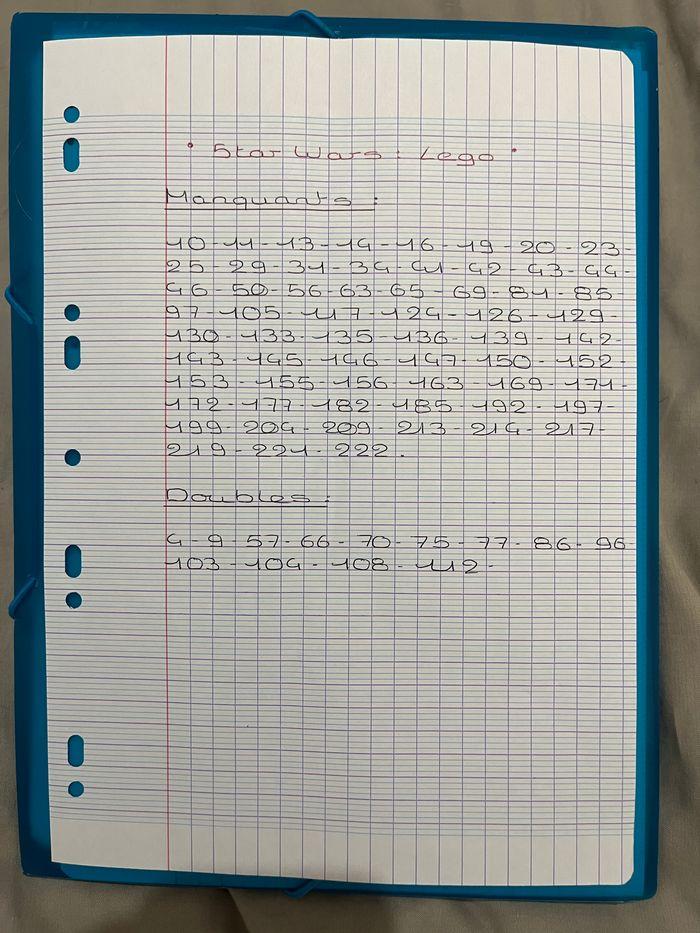 • Star Wars : Lego •
Manquants :
10 - 11 - 13 - 14 - 16 - 19 - 20 - 23 -
25 - 29 - 31 - 34 - 41 - 42 - 43 - 44 -
46 - 50 - 56 - 63 - 65 - 69 - 81 - 85 -
97 - 105 - 117 - 124 - 126 - 129 -
130 - 133 - 135 - 136 - 139 - 142 -
143 - 145 - 146 - 147 - 150 - 152 -
153 - 155 - 156 - 163 - 169 - 171 -
172 - 177 - 182 - 185 - 192 - 197 -
199 - 204 - 209 - 213 - 214 - 217 -
219 - 221 - 222 .
Doubles :
4 - 9 - 57 - 66 - 70 - 75 - 77 - 86 - 96 -
103 - 104 - 108 - 112 -